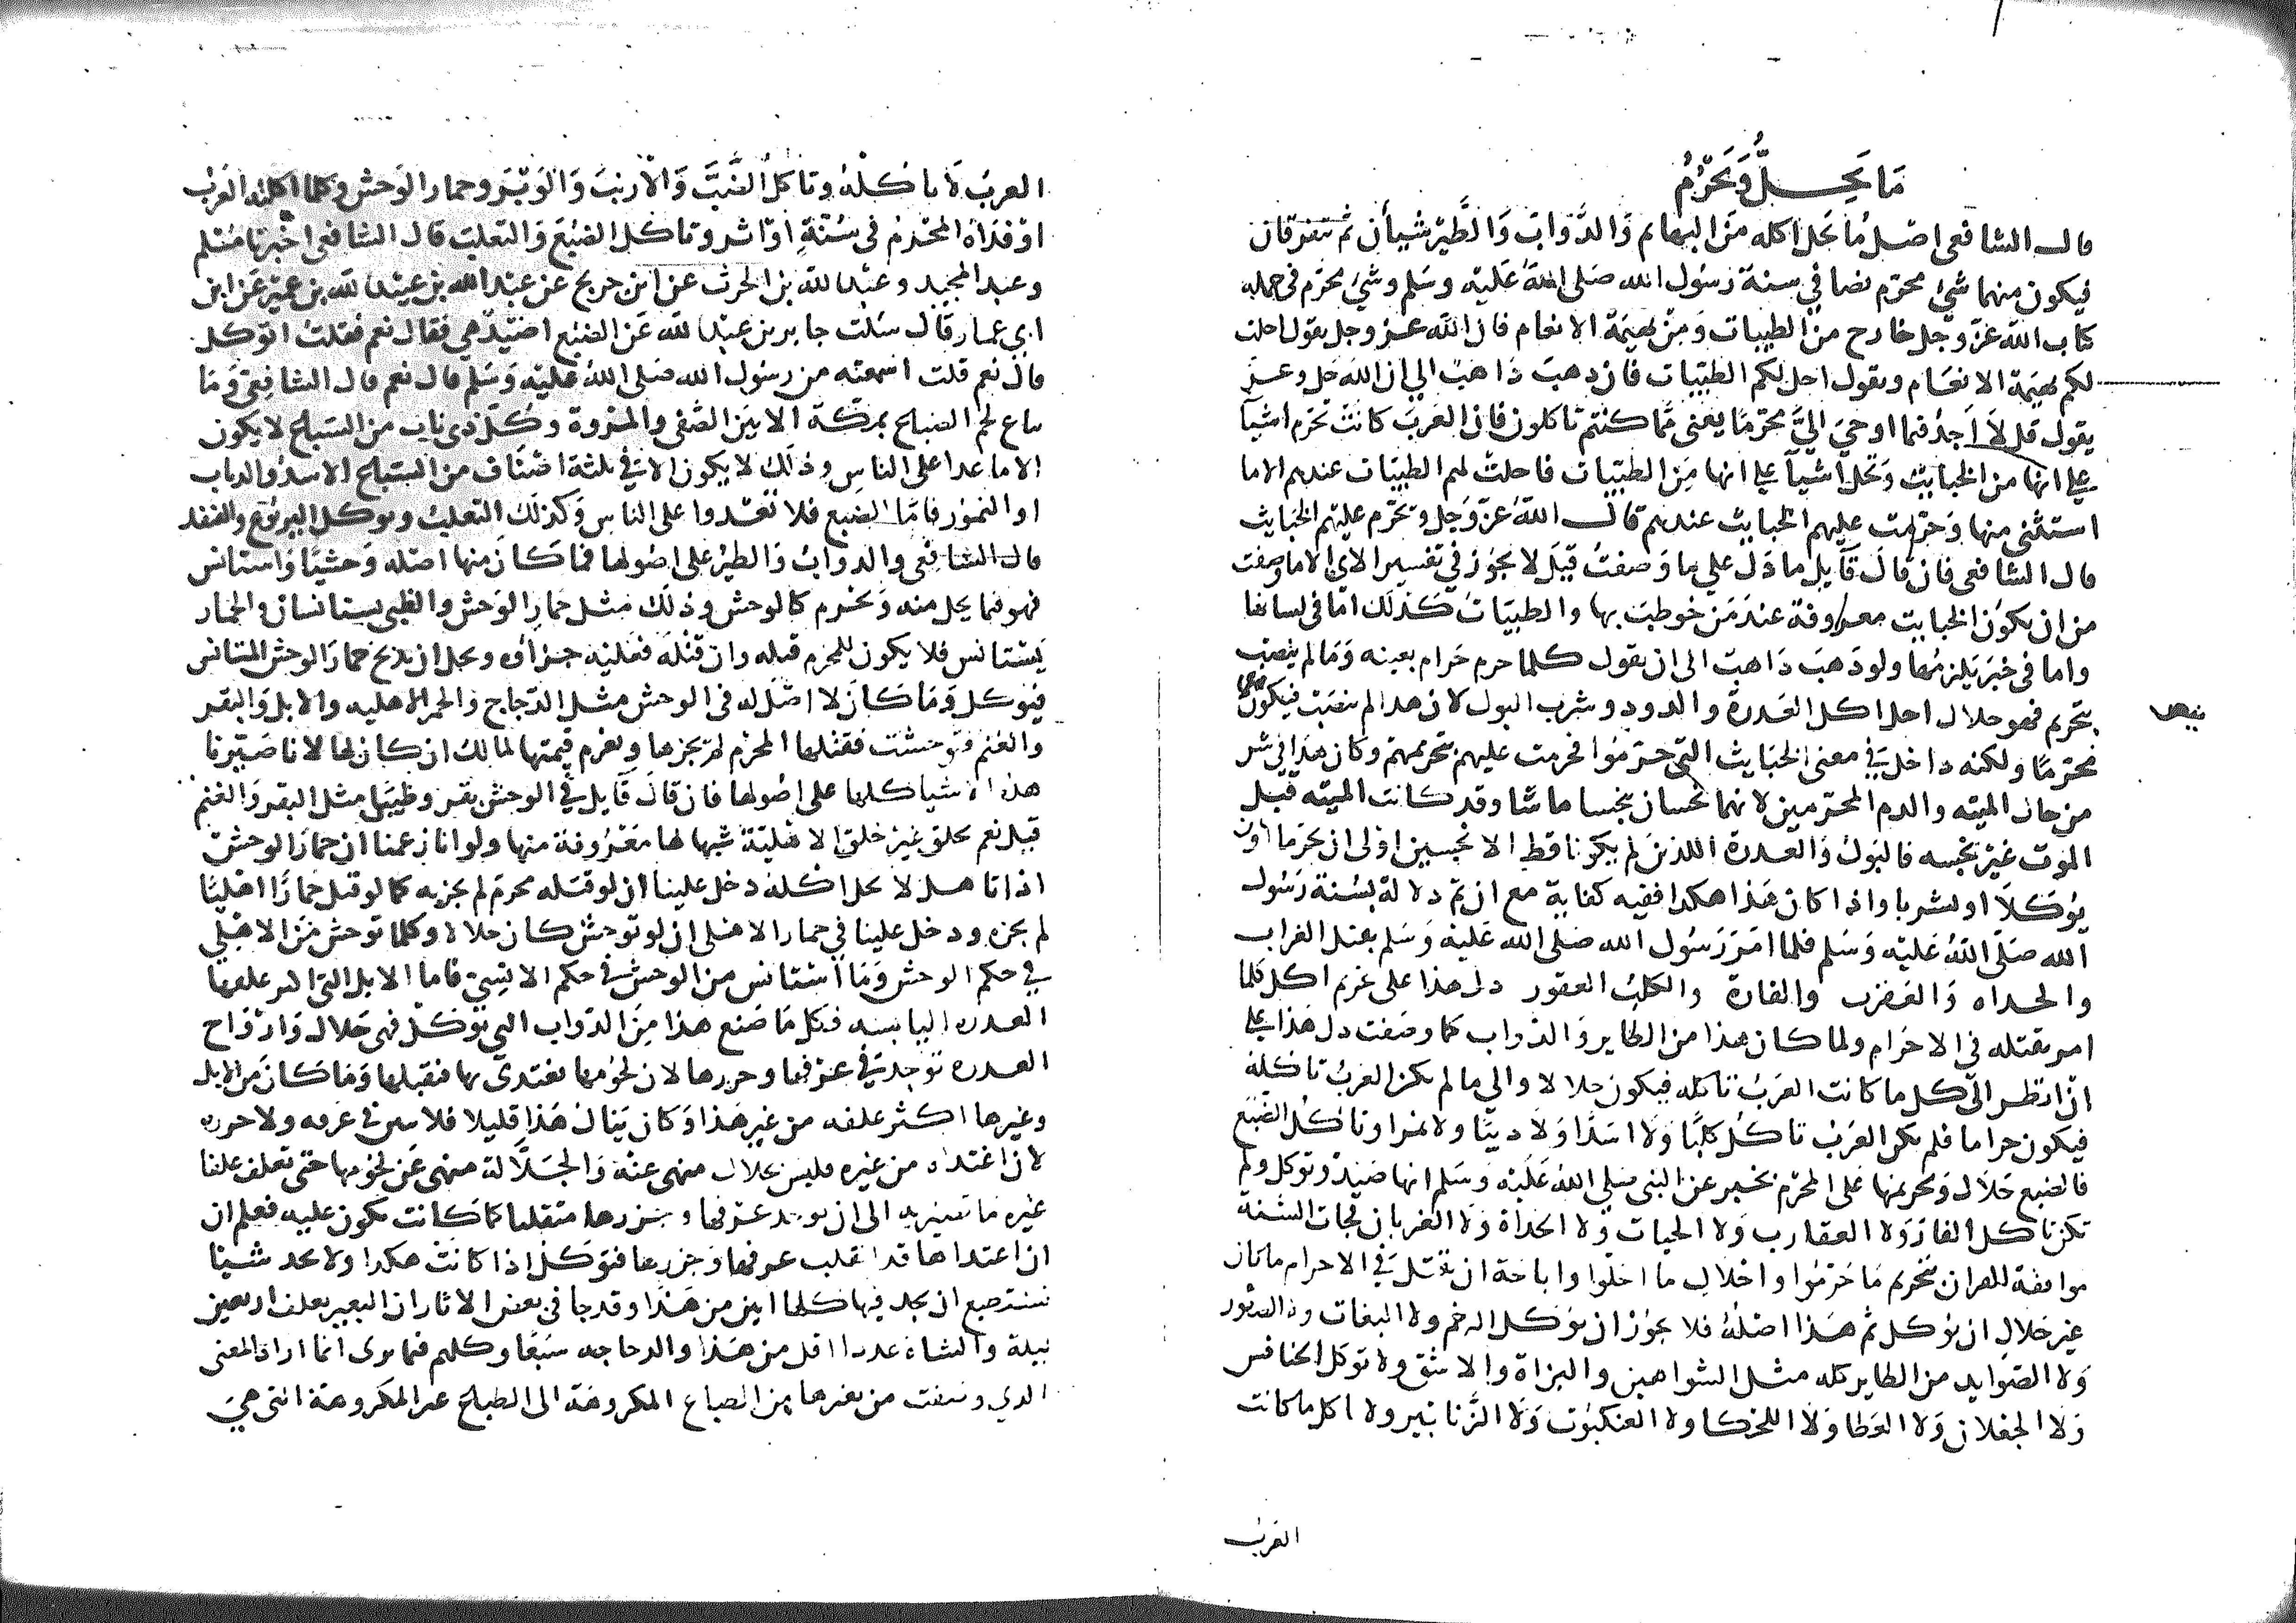 ما يحل ويحرم
قال الشافعي اصل ما يحل اكله من البهايم والدواب والطير شيأن ثم يتفرقان
فيكون منهما شيئ محرم نصا في سنة رسول الله صلى الله عليه وسلم وشيئ محرم في جملة
كتاب الله عز وجل خارج من الطيبات ومن بهيمة الانعام فان الله عز وجل يقول احلت
لكم بهيمة الانعام ويقول احل لكم الطيبات فان ذهب ذاهب الي ان الله جل وعز
يقول قل لا اجد فيما اوحي اليَّ محرمًا يعني مما كنتم تاكلون فان العرب كانت تحرم اشيآ
علي انها من الخبايث وتحل اشيآ علي انها من الطيبات فاحلت لهم الطيبات عندهم الا ما
استثني منها وحرمت عليهم الخبايث عندهم قال الله عز وجل ويحرم عليهم الخبايث
قال الشافعي فان قال قايل ما دل علي ما وصفت قيل لا يجوز في تفسير الاي الا ما وصفت
من ان تكون الخبايث معروفة عند من خوطب بها والطيبات كذلك اما في لسانها
واما في خبر يلزمها ولو ذهب ذاهب الى ان يقول كلما حرم حرام بعينه وما لم ينص
بتحريم فهو حلال احل اكل العذرة والدود وشرب البول لان هذا لم ينص فيكون
محرمًا ولكنه داخل في معنى الخبايث التي حرموا فحرمت عليهم بتحريمهم وكان هذا في شر
من حال الميته والدم المحرمين لانهما نجسان ينجسا ما ماسا وقد كانت الميته قبل
الموت غير نجسه فالبول والعذرة اللذين لم يكونا قط الا نجسين اولى ان يحرما ان
يؤكلا او يشربا واذا كان هذا هكذا ففيه كفاية مع ان ثم دلالة بسنة رسول
الله صلى الله عليه وسلم فلما امر رسول الله صلى الله عليه وسلم بقتل الغراب
والحداه والعقرب والفارة والكلب العقور دل هذا على تحريم اكل كلما
امر بقتله في الاحرام ولما كان هذا من الطاير والدواب كما وصفت دل هذا علي
ان انظر الى كل ما كانت العرب تاكله فيكون حلالا والي ما لم تكن العرب تاكله
فيكون حراما فلم تكن العرب تاكل كلبًا ولا اسدًا ولا ديبًا ولا نمرا وتاكل الضبع
فالضبع حلال وتحريمها على المحرم بخبر عن النبي صلى الله عليه وسلم انها صيد وتوكل ولم
تكن تاكل الفار ولا العقارب ولا الحيات ولا الحداة ولا الغربان فجات السنة
موافقة للقران بتحريم ما حرموا واحلال ما احلوا واباحة ان يقتل في الاحرام ما كان
غير حلال ان يؤكل ثم هذا اصله فلا يجوز ان يؤكل الرخم ولا البغاث ولا الصقور
ولا الصوايد من الطاير كله مثل الشواهين والبزاة والباشق ولا توكل الخنافس
ولا الجعلان ولا العظا ولا اللحكا ولا العنكبوت ولا الزنابير ولا اكل ما كانت
العرب
العرب لا تاكله وتاكل الضب والارنب والوبر وحمار الوحش وكلما اكلته العرب
او فداه المحرم في سنة او اثر وتاكل الضبع والثعلب قال الشافعي اخبرنا مسلم
وعبد المجيد وعبد الله بن الحرث عن ابن جريج عن عبد الله بن عبيد الله بن عمير عن ابن
ابي عمار قال سئلت جابر بن عبد الله عن الضبع اصيد هي فقال نعم فقلت اتوكل
قال نعم قلت اسمعته من رسول الله صلى الله عليه وسلم قال نعم قال الشافعي وما
يباع لحم الضباع بمكة الا بين الصفي والمروة وكل ذي ناب من السباع لا يكون
الا ما عدا على الناس وذلك لا يكون الا في ثلثة اصناف من السباع الاسد والدياب
او النمور فاما الضبع فلا تعدوا على الناس وكذلك الثعلب ويوكل اليربوع والقنفد
قال الشافعي والدواب والطير على اصولها فما كان منها اصله وحشيًا واستانس
فهو فيما يحل منه ويحرم كالوحش وذلك مثل حمار الوحش والظبي يستانسان والحمار
يستانس فلا يكون للمحرم قتله وان قتله فعليه جزاؤه ويحل ان يذبح حمار الوحش المستانس
فيوكل وما كان لا اصل له في الوحش مثل الدجاج والحمر الاهليه والابل والبقر
والغنم فتوحشت فقتلها المحرم لم يجزها ويغرم قيمتها لمالك ان كان لها لانا صيرنا
هذه الاشيا كلها على اصولها فان قال قايل في الوحش بقر وظيبا مثل البقر والغنم
قيل نعم بخلق غير خلق الاهلية شبها لها معروفة منها ولو انا زعمنا ان حمار الوحش
اذا تاهل لا يحل اكله دخل علينا ان لو قتله محرم لم يجزه كما لو قتل حمارًا اهليًا
لم يجزه ودخل علينا في حمار الاهلى ان لو توحش كان حلالا وكلما توحش من الاهلي
في حكم الوحش وما استانس من الوحش في حكم الانسي فاما الابل التي اكثر علفها
العذره اليابسه فكل ما صنع هذا من الدواب التي توكل فهي جلال وارواح
العذره توجد في عرقها وجررها لان لحومها تغتذي بها فتقبلها وما كان من الابل
وغيرها اكثر علفه من غير هذا وكان ينال هذا قليلا فلا يبين في عرقه ولا جرره
لان اغتذاه من غيره فليس بجلال منهي عنه والجلالة منهى عن لحومها حتى تعلف علفا
غيره ما تصير به الى ان يوجد عرقها وجررها متقلبا عما كانت تكون عليه فعلم ان
ان اغتذاها قد انقلب عرقها وجررها فتوكل اذا كانت هكذا ولا نجد شيئا
نستطيع ان نجد فيها كلما ابين من هذا وقد جا في بعض الاثار ان البعير يعلف اربعين
ليلة والشاه عددا اقل من هذا والدجاجه سبعًا وكلهم فيما يرى انما اراد المعنى
الذي وصفت من تغيرها من الطباع المكروهة الى الطباع غير المكروهة التي هي